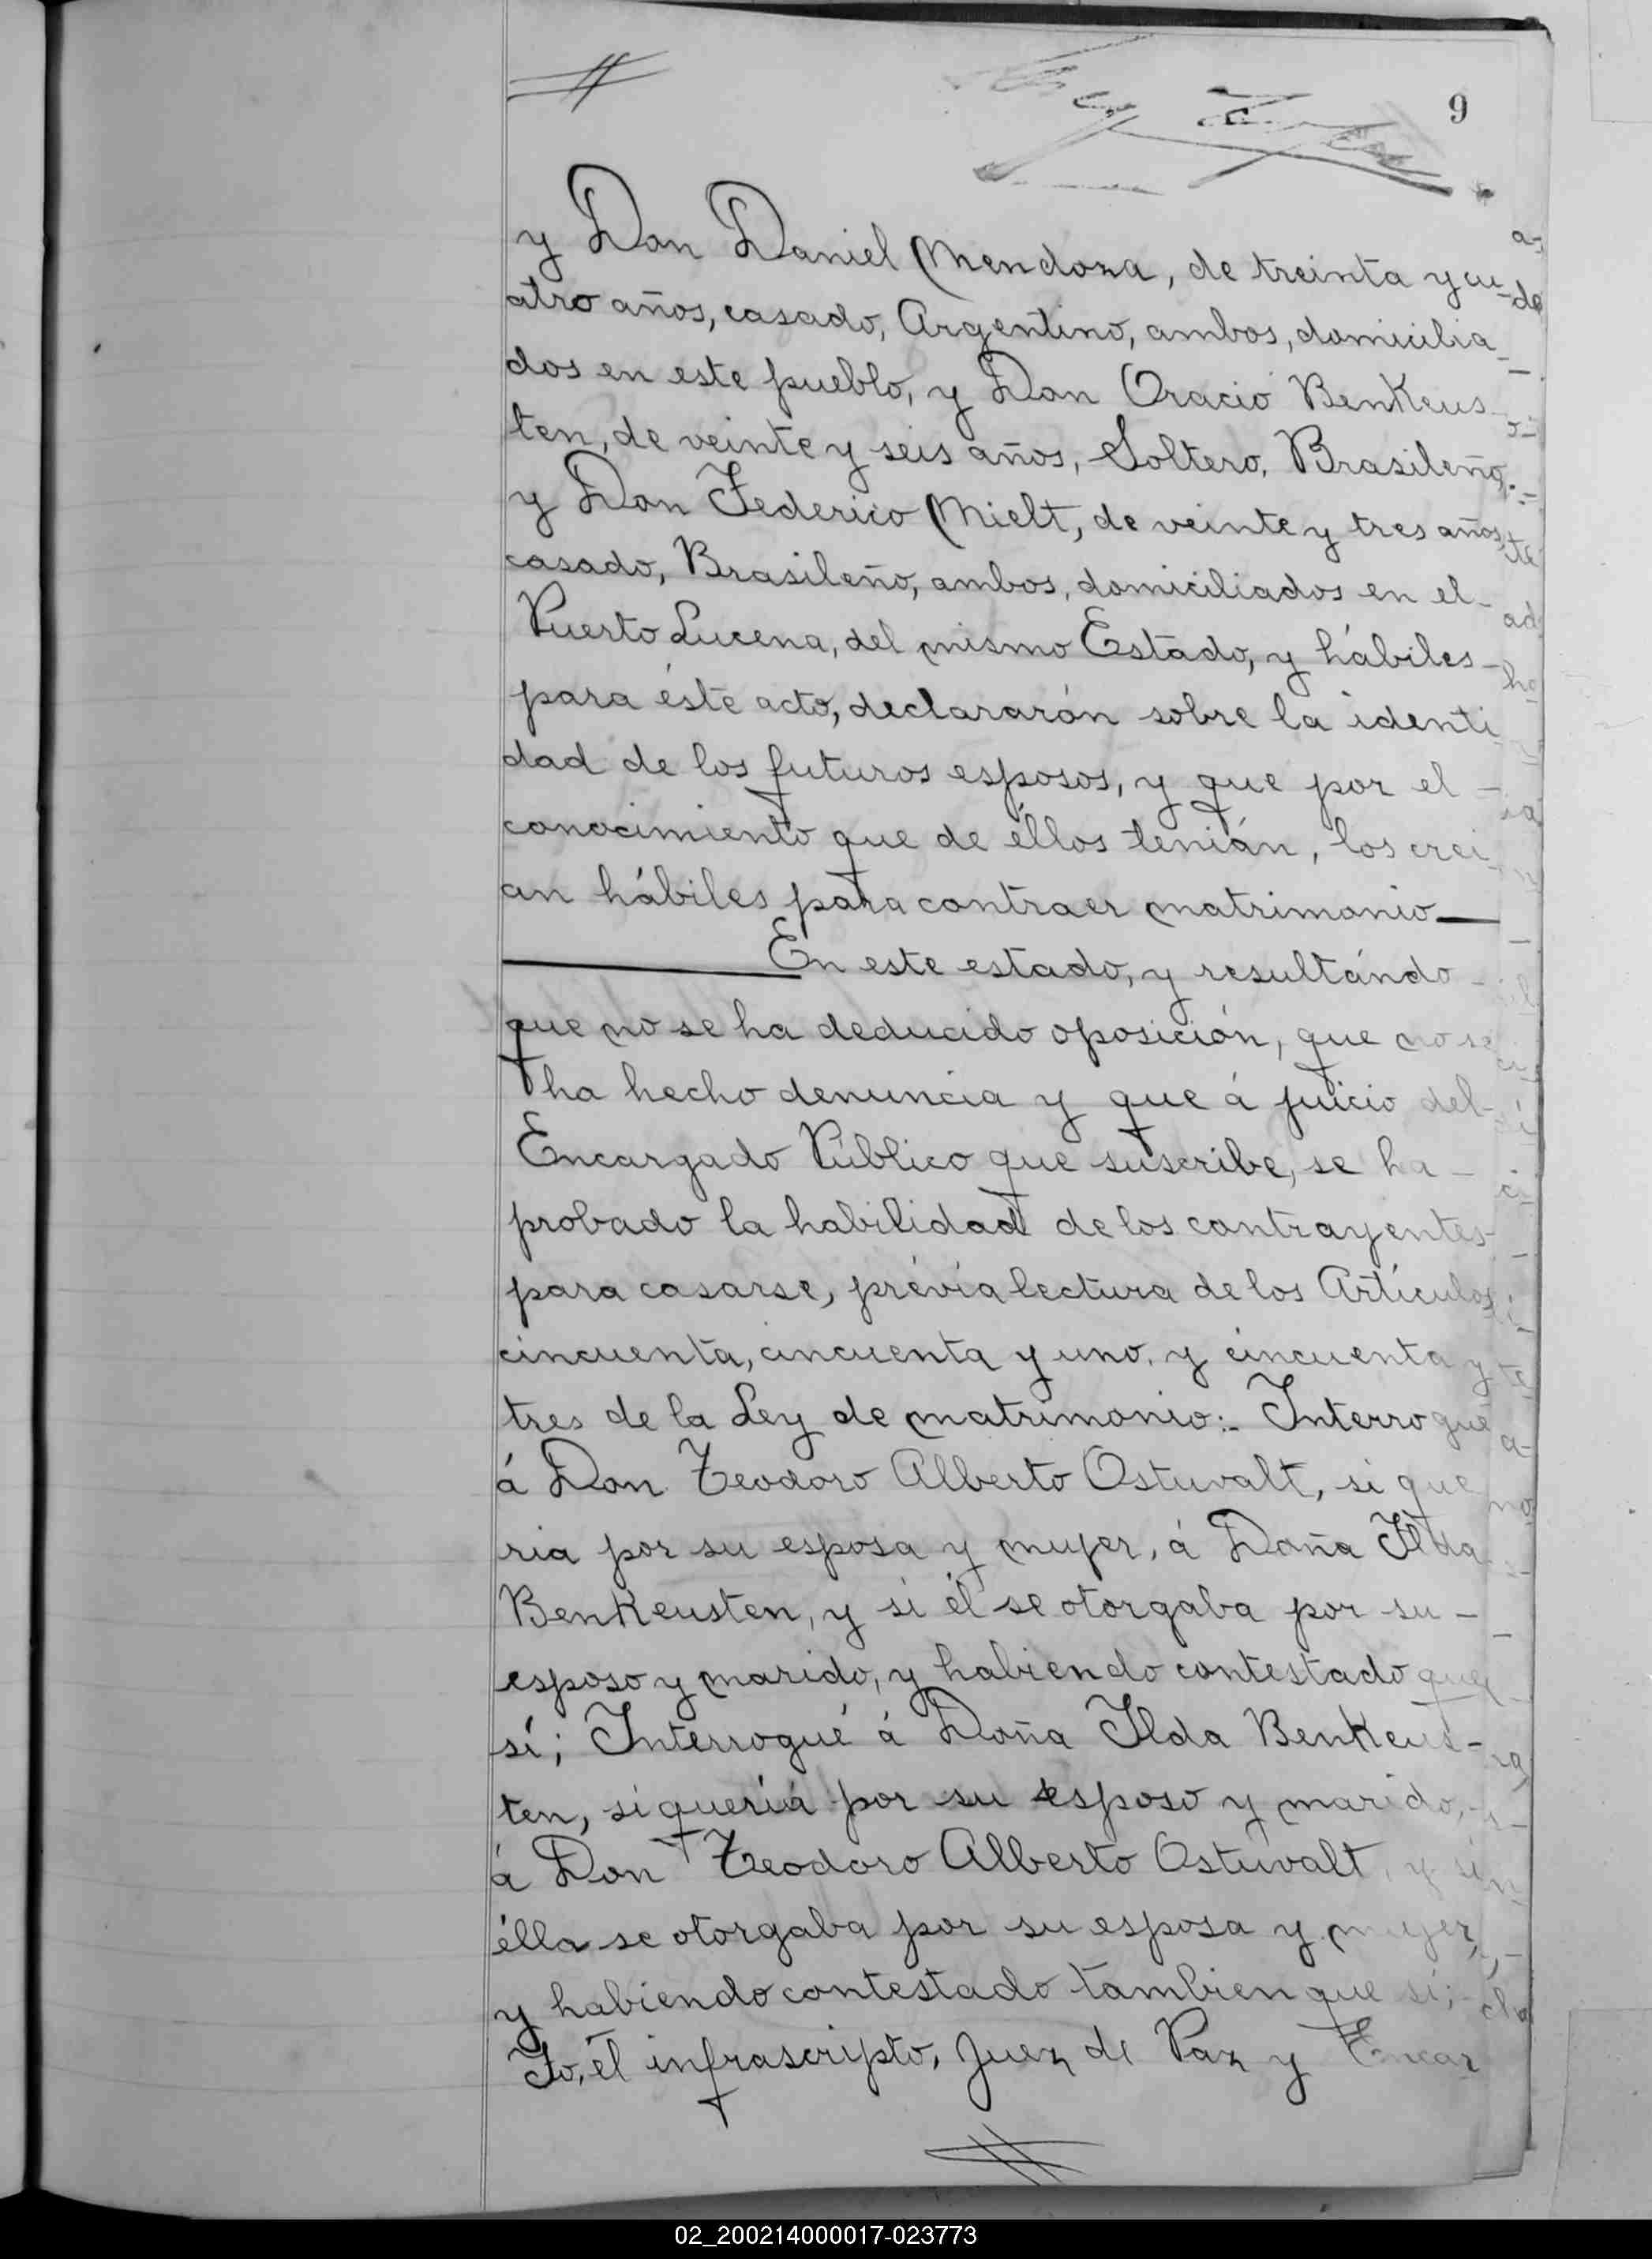 9
y Don Daniel Mendoza, de treinta y cu-
atro años, casado, Argentino, ambos, domicilia_
dos en este pueblo, y Don Oracio BenKeus_
ten, de veinte y seis años, Soltero, Brasileño,
y Don Federico Mielt, de veinte y tres años
casado, Brasileño, ambos, domiciliados en el_
Puerto Lucena, del mismo Estado, y hábiles_
para éste acto, declararón sobre la identi_
dad de los futuros esposos, y que por el_
conocimiento que de éllos tenián, los crei_
an hábiles para contraer matrimonio_
En este estado, y resultándo
que no se ha deducido oposición, que no se
ha hecho denuncia y que á juicio del_
Encargado Público que suscribe, se ha_
probado la habilidad de los contrayentes
para casarse, prévia lectura de los Artículos
cincuenta, cincuenta y uno, y cincuenta y
tres de la Ley de matrimonio:_ Interrogué
á Don Teodoro Alberto Ostuvalt, si que
ria por su esposa y mujer, á Doña Ilda
BenKeusten, y si él se otorgaba por su_
esposo y marido, y habiendo contestado que
sí; Interrogué á Doña Ilda BenKeus-
ten, si queriá por su esposo y marido,
á Don Teodoro Alberto Ostuvalt, y si
élla se otorgaba por su esposa y mujer,
y habiendo contestado tambien que sí;
Yo, él infrascripto, Juez de Paz y Encar
02_200214000017-023773